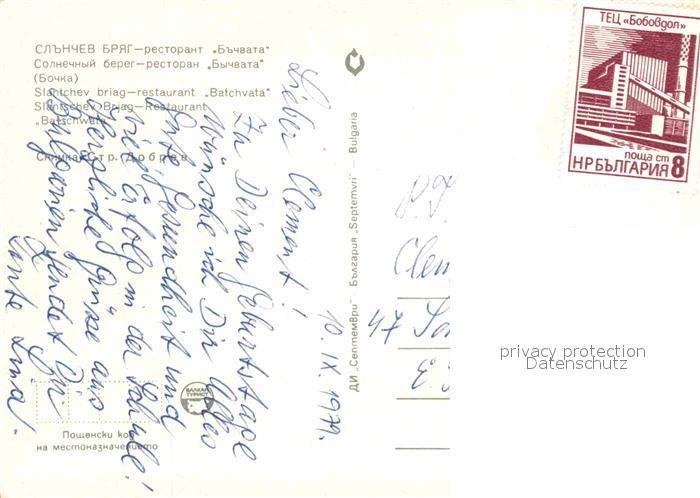 СЛЪНЧЕВ БРЯГ—ресторант „Бъчвата"
Солнечный берег—ресторан „Бычвата"
(Бочка)
Slantchev briag-restaurant „Batchvata"
Slantschev Briag-Restaurant
„Batschwata"
Снимка Стр. Добрев
Lieber Clement!
10. IX. 1979.
Zu Deinem Geburtstage
Wünsche ich Dir Alles
Gute, Gesundheit und
Viel Erfolg in der Schule!
Herzliche Grüsse aus
Bulgarien sendet Dir
Tante
БАЛКАН
ТУРИСТ
Пощенски код
на местоназначението
ДИ „Септември" България „Septemvri" — Bulgaria
ТЕЦ „Бобовдол"
поща ст 8
НР БЪЛГАРИЯ
Clem
47
privacy protection
Datenschutz